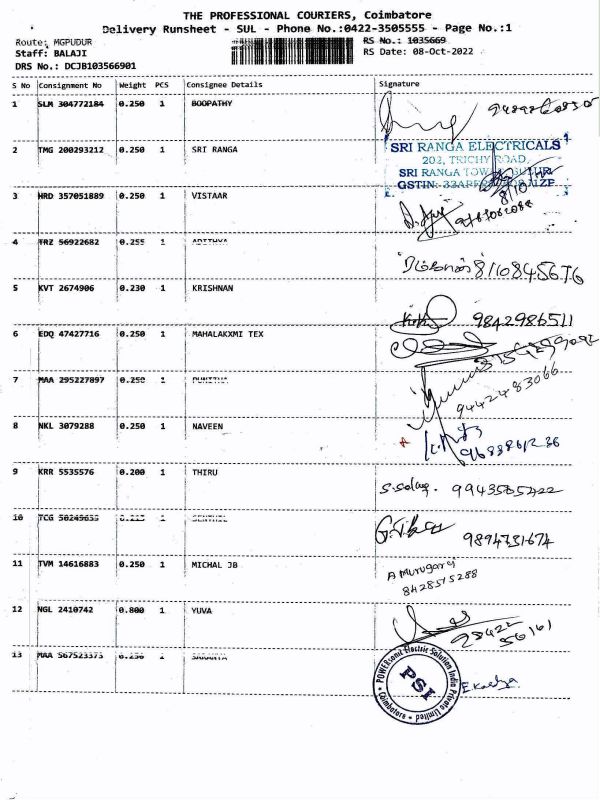 THE PROFESSIONAL COURIERS, Coimbatore
Delivery Runsheet - SUL - Phone No.:0422-3505555 - Page No.:1
Route: MGPUDUR
RS No.: 1035669
Staff: BALAJI
RS Date: 08-Oct-2022
DRS No.: DCJB103566901
S No Consignment No Weight PCS Consignee Details Signature
1 SLM 304772184 0.250 1 BOOPATHY
2 TMG 200293212 0.250 1 SRI RANGA
SRI RANGA ELECTRICALS
202, TRICHY ROAD,
SRI RANGA
GSTIN:
8/10
3 HRD 357051889 0.250 1 VISTAAR
4 TRZ 56922682 0.255 1 ADITHYA
8110845676
5 KVT 2674906 0.230 1 KRISHNAN
9842986511
6 EDQ 47427716 0.250 1 MAHALAKXMI TEX
7 MAA 295227897 0.250 1 PUNITHA
9442483066
8 NKL 3079288 0.250 1 NAVEEN
9
KRR 5535576 0.200 1 THIRU
9943565422
10 TCG 50249655 1 SENTHIL
9894731674
11 TVM 14616883 0.250 1 MICHAL JB
A Murugaraj
8428515288
12 NGL 2410742 0.800 1 YUVA
13 MAA 567523373 0.250 1
POWERsonic Electric Solution India Private Limited
Coimbatore
PSI